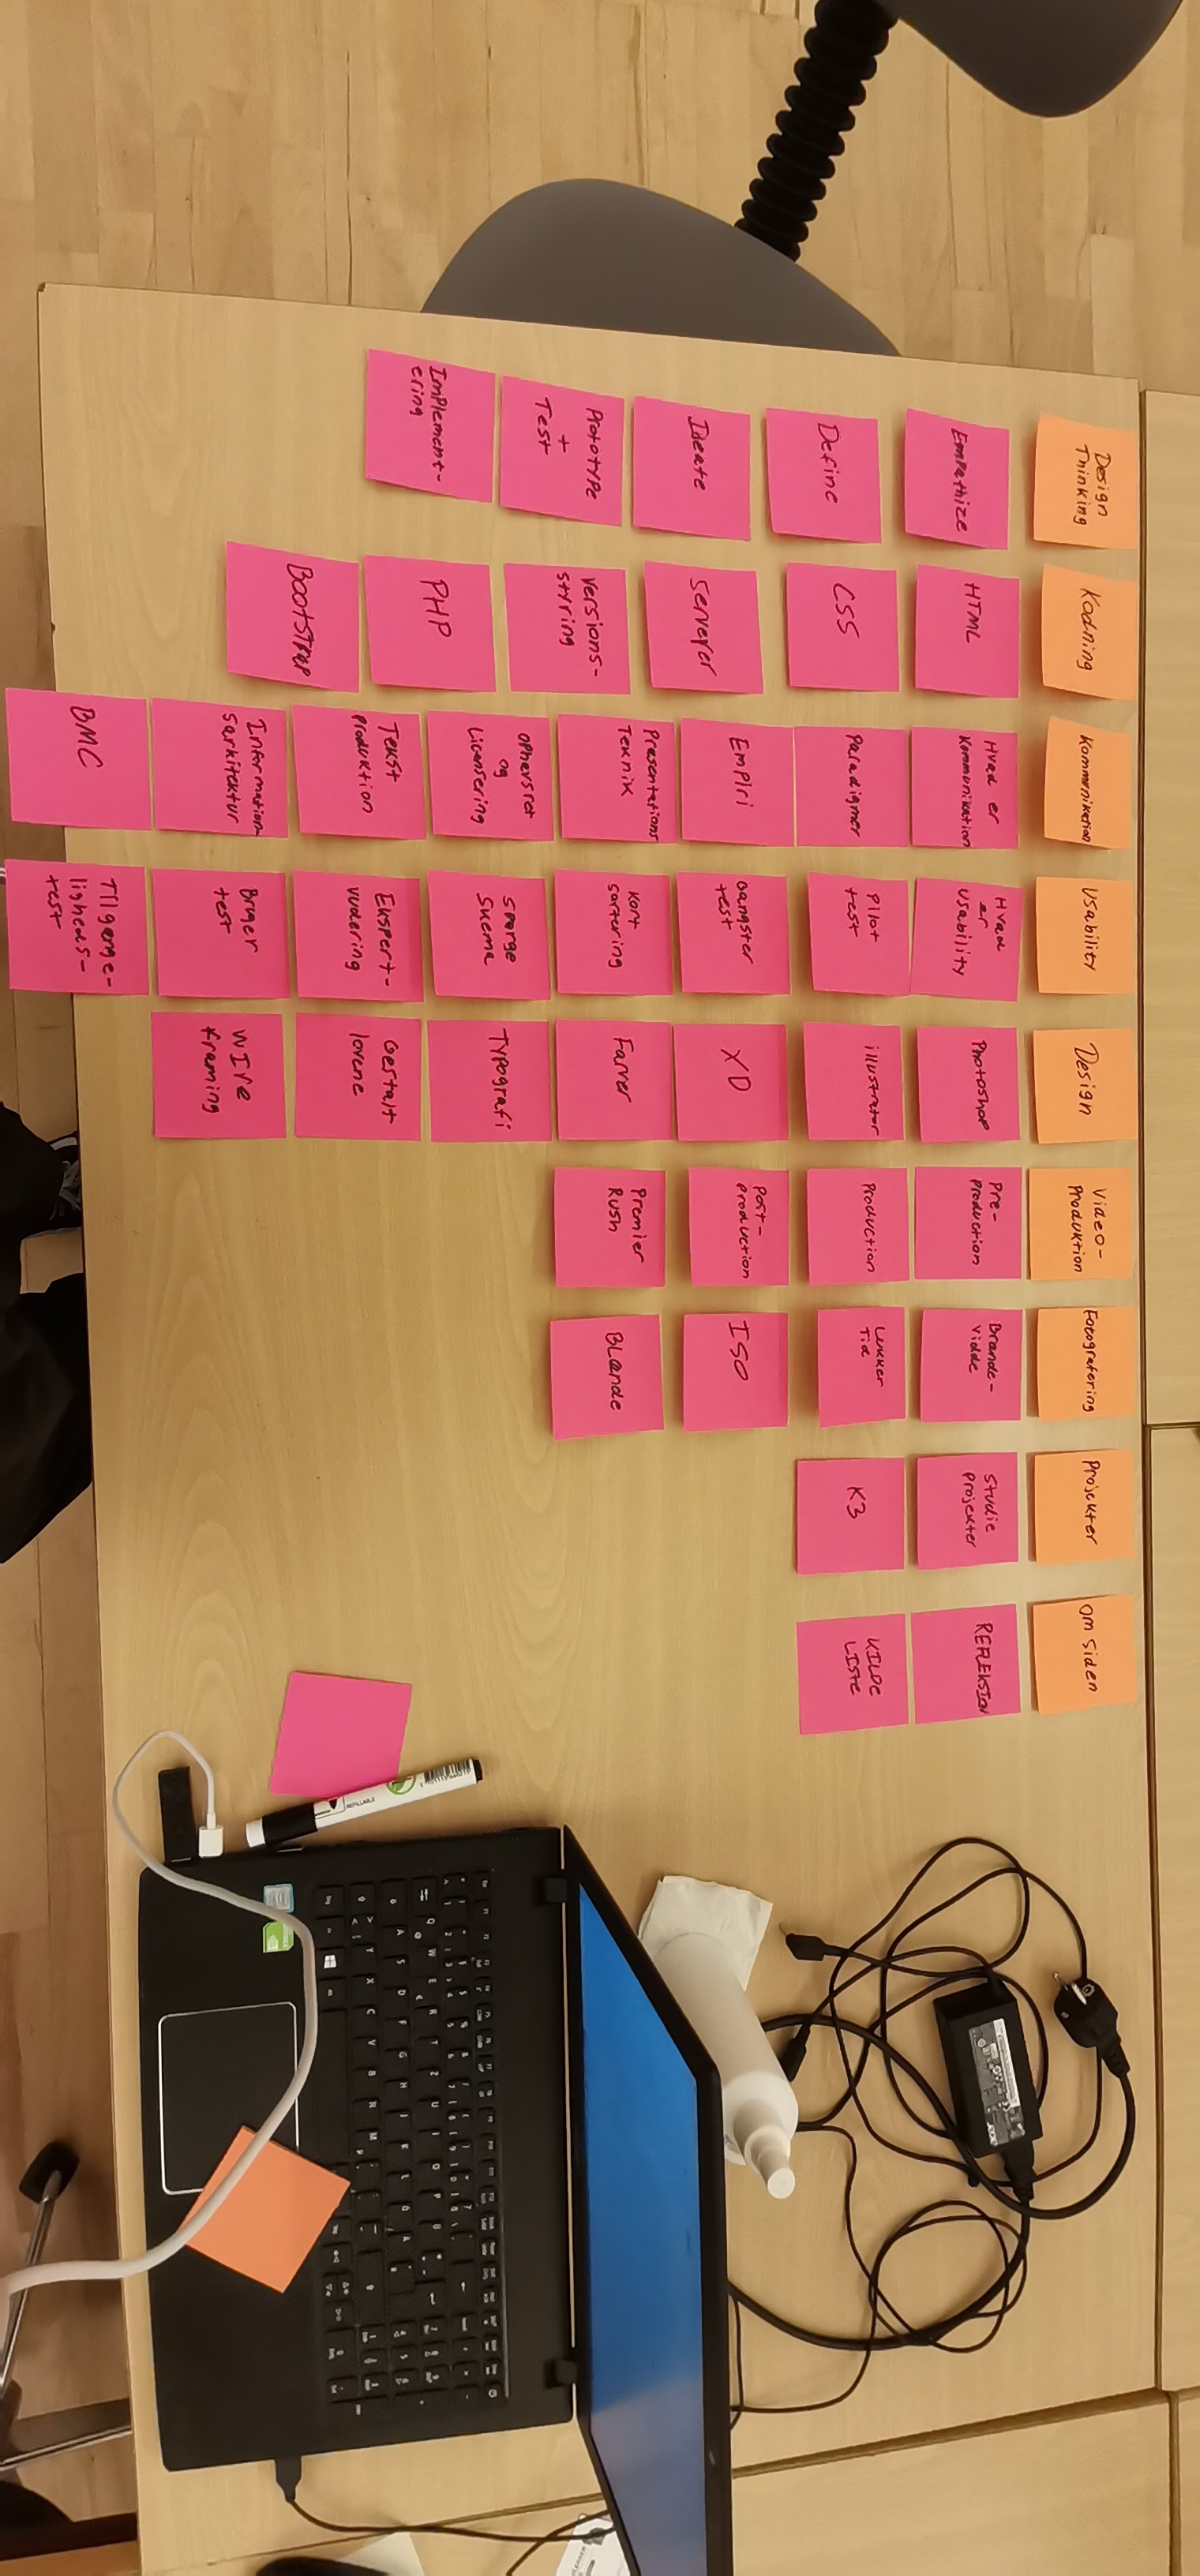 Design
Thinking
Empathize
Define
Ideate
Prototype
+
Test
Implement-
ering
Kodning
HTML
CSS
Serverer
Versions-
styring
PHP
Bootstrap
Kommunikation
Hvad er
Kommunikation
Paradigmer
Empiri
Presentations
Teknik
Ophavsret
og
Licensering
Tekst
produktion
Information-
sarkitektur
BMC
Usability
Hvad
er
Usability
Pilot
test
Gangster
test
Kort
sortering
Spørge
Skema
Ekspert-
vurdering
Bruger
test
Tilgænge-
ligheds-
test
Design
Photoshop
illustrator
XD
Farver
Typografi
Gestalt
lovene
Wire
framing
Video-
Produktion
Pre-
production
Production
Post-
production
Premier
Rush
Fotografering
Brænde-
Vidde
Lukker
Tid
ISO
BLænde
Projekter
Studie
projekter
K3
Om Siden
REFLEKSION
KILDE
LISTE
REFILLABLE